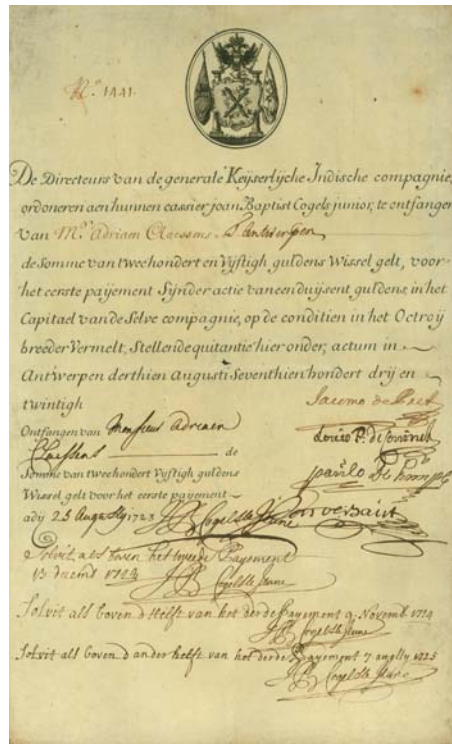 No. 1441.
De Directeurs van de generale Keijserlijcke Indische compagnie,
ordoneren aen hunnen cassier joan Baptist Cogels junior, te ontfangen
van Mr. Adriaen Claessens
de Somme van tweehondert en Vijftigh guldens Wissel gelt, voor
het eerste paijement Sijnder actie van een duijsent guldens in het
Capitael van de Selve compagnie, op de conditien in het Octroij
breeder Vermelt, Stellende quitantie hier onder, actum in
Antwerpen derthien Augusti Seventhien hondert drij en
twintigh
Ontfangen van Monsieur Adriaen
Claessens de
Somme van tweehondert Vijftigh guldens
Wissel gelt voor het eerste payement
adij 25 Augusty 1723
Solvit als boven het tweede Payement
13 decemb
Solvit als boven d Helft van het derde Payement 9 Novemb 1724
Solvit als boven d ander helft van het derde Payement 7 1725